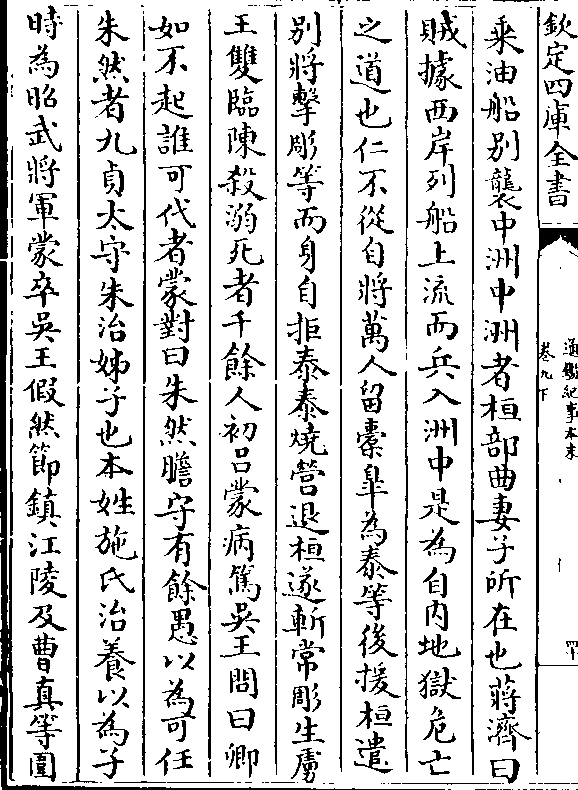 欽定四庫全書
通鑑紀事本末
卷九下
四十
乘油船别襲中洲中洲者桓部曲妻子所在也蔣濟曰
賊據西岸列船上流而兵入洲中是為自內地獄危亡
之道也仁不從自將萬人留橐臯為泰等後援桓遣
别將擊彫等而身自拒泰泰燒營退桓遂斬常彫生虜
王雙臨陳殺溺死者千餘人初吕蒙病篤吳王問曰卿
如不起誰可代者蒙對曰朱然膽守有餘愚以為可任
朱然者九貞太守朱治姊子也本姓施氏治養以為子
時為昭武將軍蒙卒吳王假然節鎮江陵及曹真等圍